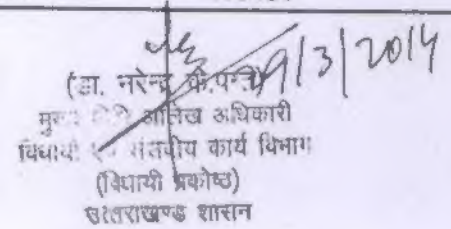 29/3/2014
(डा. नरेन्द्र के.पन्त)
मुख्य विधि आलेख अधिकारी
विधायी एवं संसदीय कार्य विभाग
(विधायी प्रकोष्ठ)
उत्तराखण्ड शासन